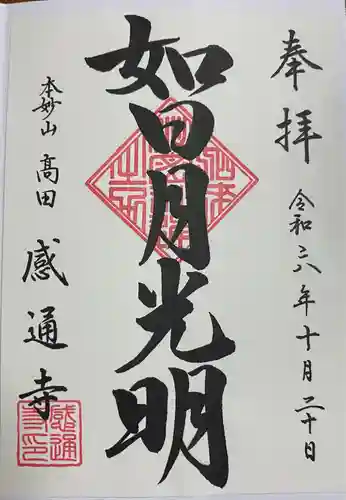 奉拝
令和六年十月二十日
如日月光明
本妙山
高田
感通寺
感通
寺印